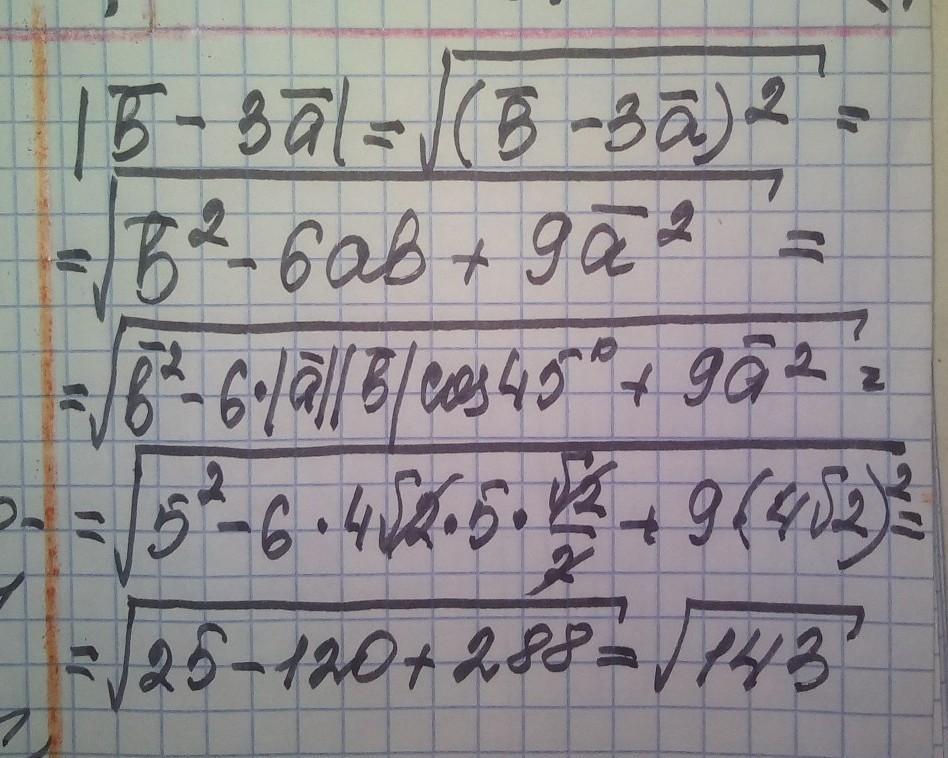 |B̅ - 3a̅| = √(B̅ - 3a̅)² =
= √B̅² - 6aB + 9a̅² =
= √B̅² - 6·|a̅||B̅|cos45° + 9a̅² =
= √5² - 6·4√2·5·√2/2 + 9(4√2)² =
= √25 - 120 + 288 = √143